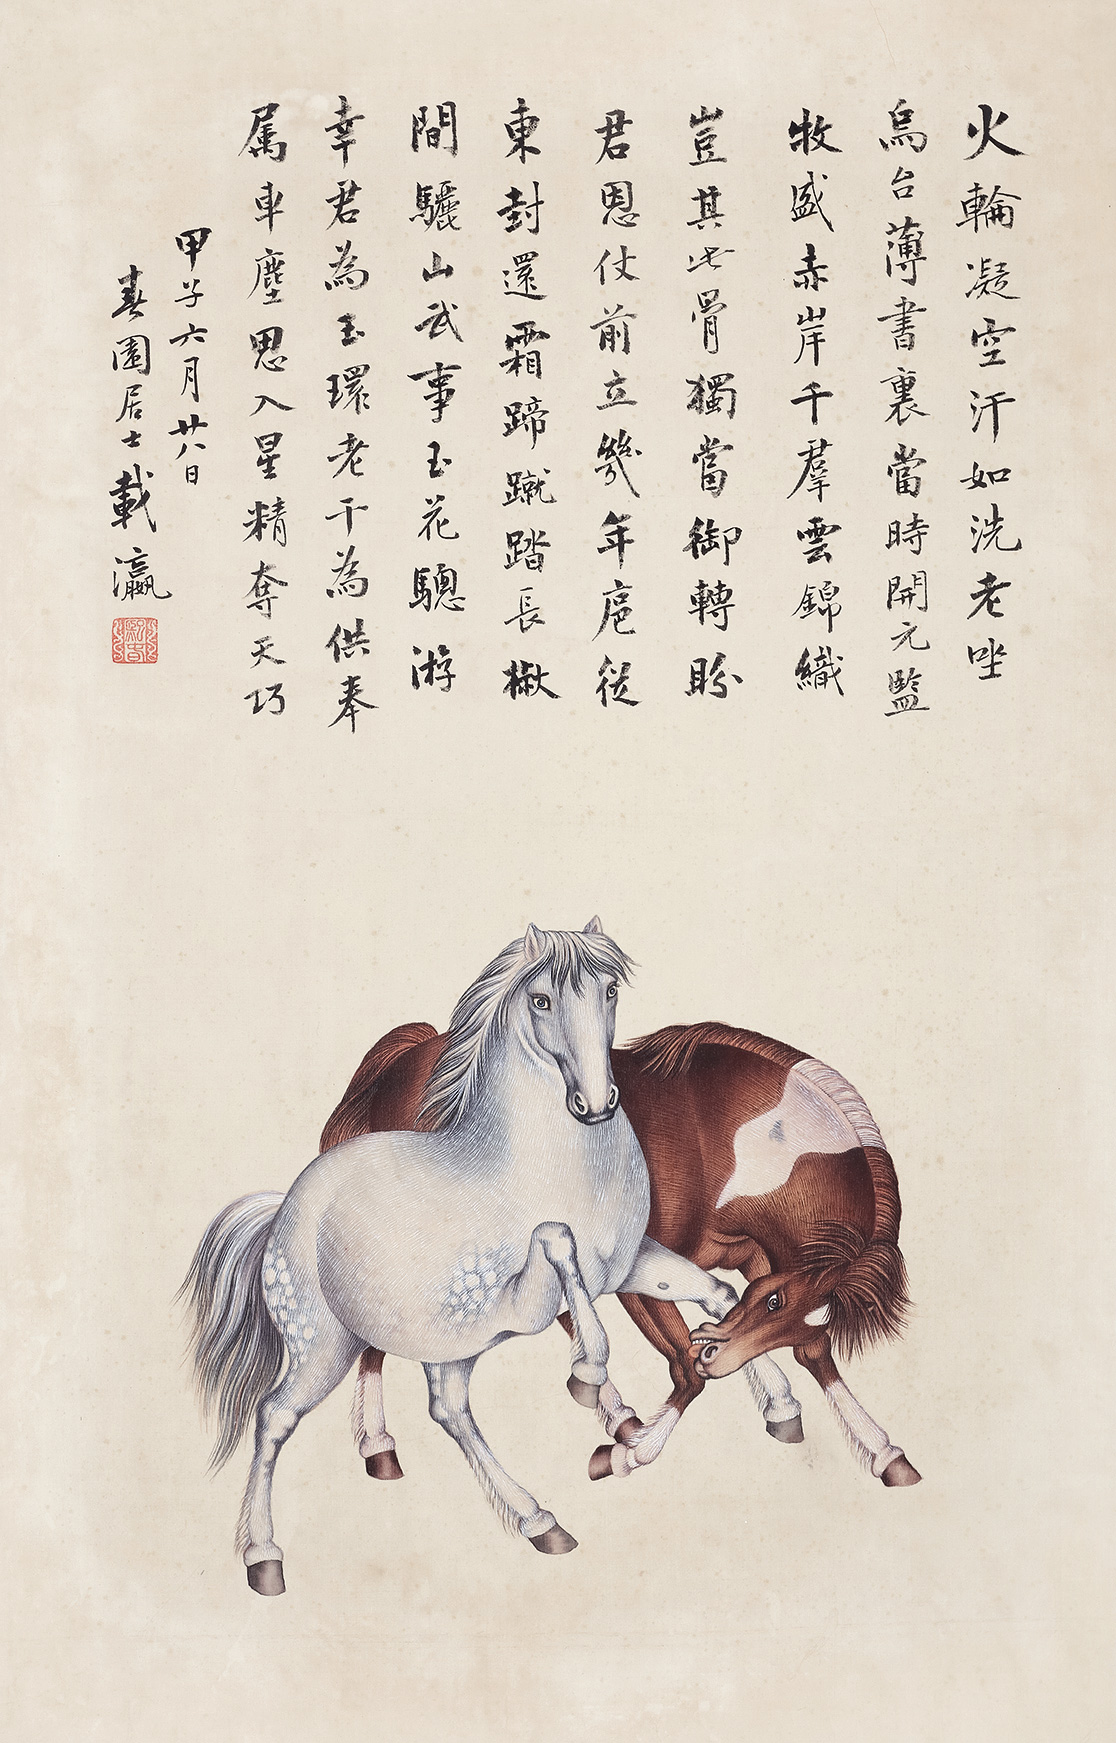 火輪凝空汗如洗老㘸
烏台薄書裏當時開元監
牧盛赤岸千羣雲錦織
豈其此骨獨當御轉盼
君恩仗前立幾年扈從
東封還霜蹄蹴踏長楸
間驪山武事玉花驄游
幸君為玉環老干為供奉
属車塵思入星精奪天巧
甲子六月廿八日
春園居士載瀛